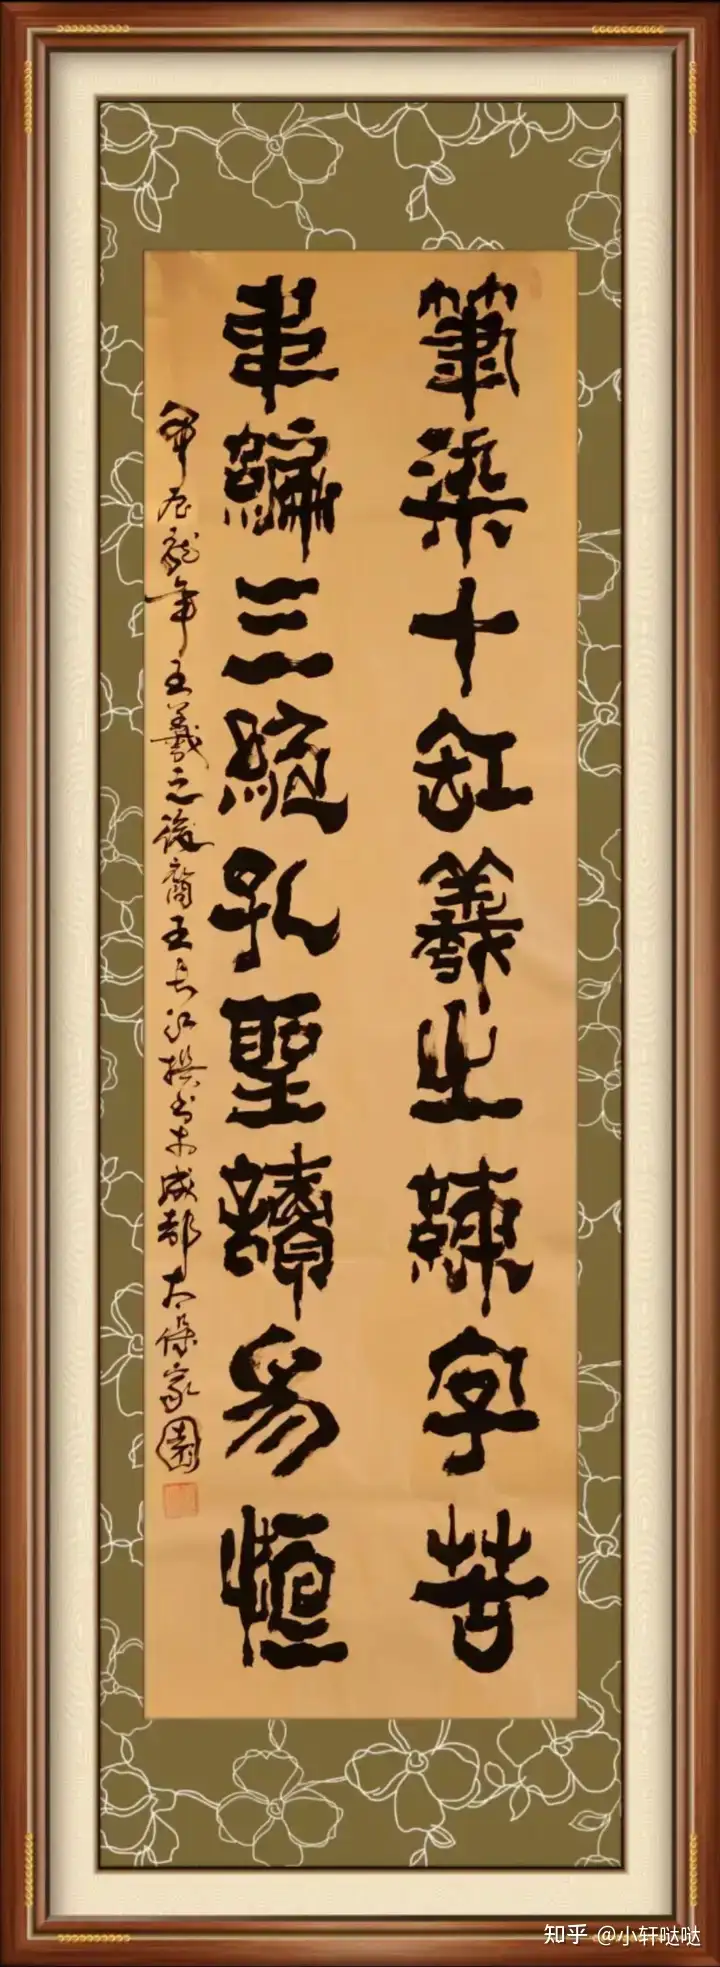 筆染十缸羲之練字苦
韋編三絕孔聖讀易恒
甲辰龍年王羲之後裔王長江撰書於成都太保家園
知乎 @小轩哒哒